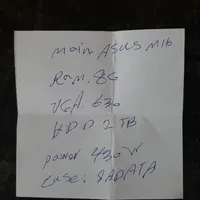 main ASUS M16
Ram. 8G
VGA. 630
HDD 2 TB
power 430 W
case: SADATA